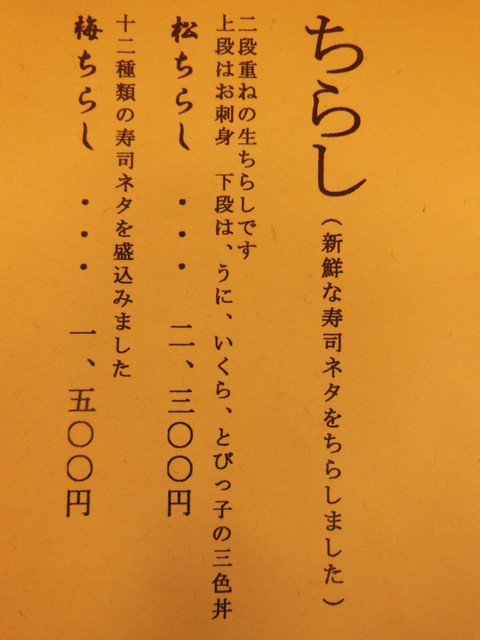 ちらし（新鮮な寿司ネタをちらしました）
二段重ねの生ちらしです
上段はお刺身　下段は、うに、いくら、とびっ子の三色丼
松ちらし・・・二、三〇〇円
十二種類の寿司ネタを盛込みました
梅ちらし・・・一、五〇〇円